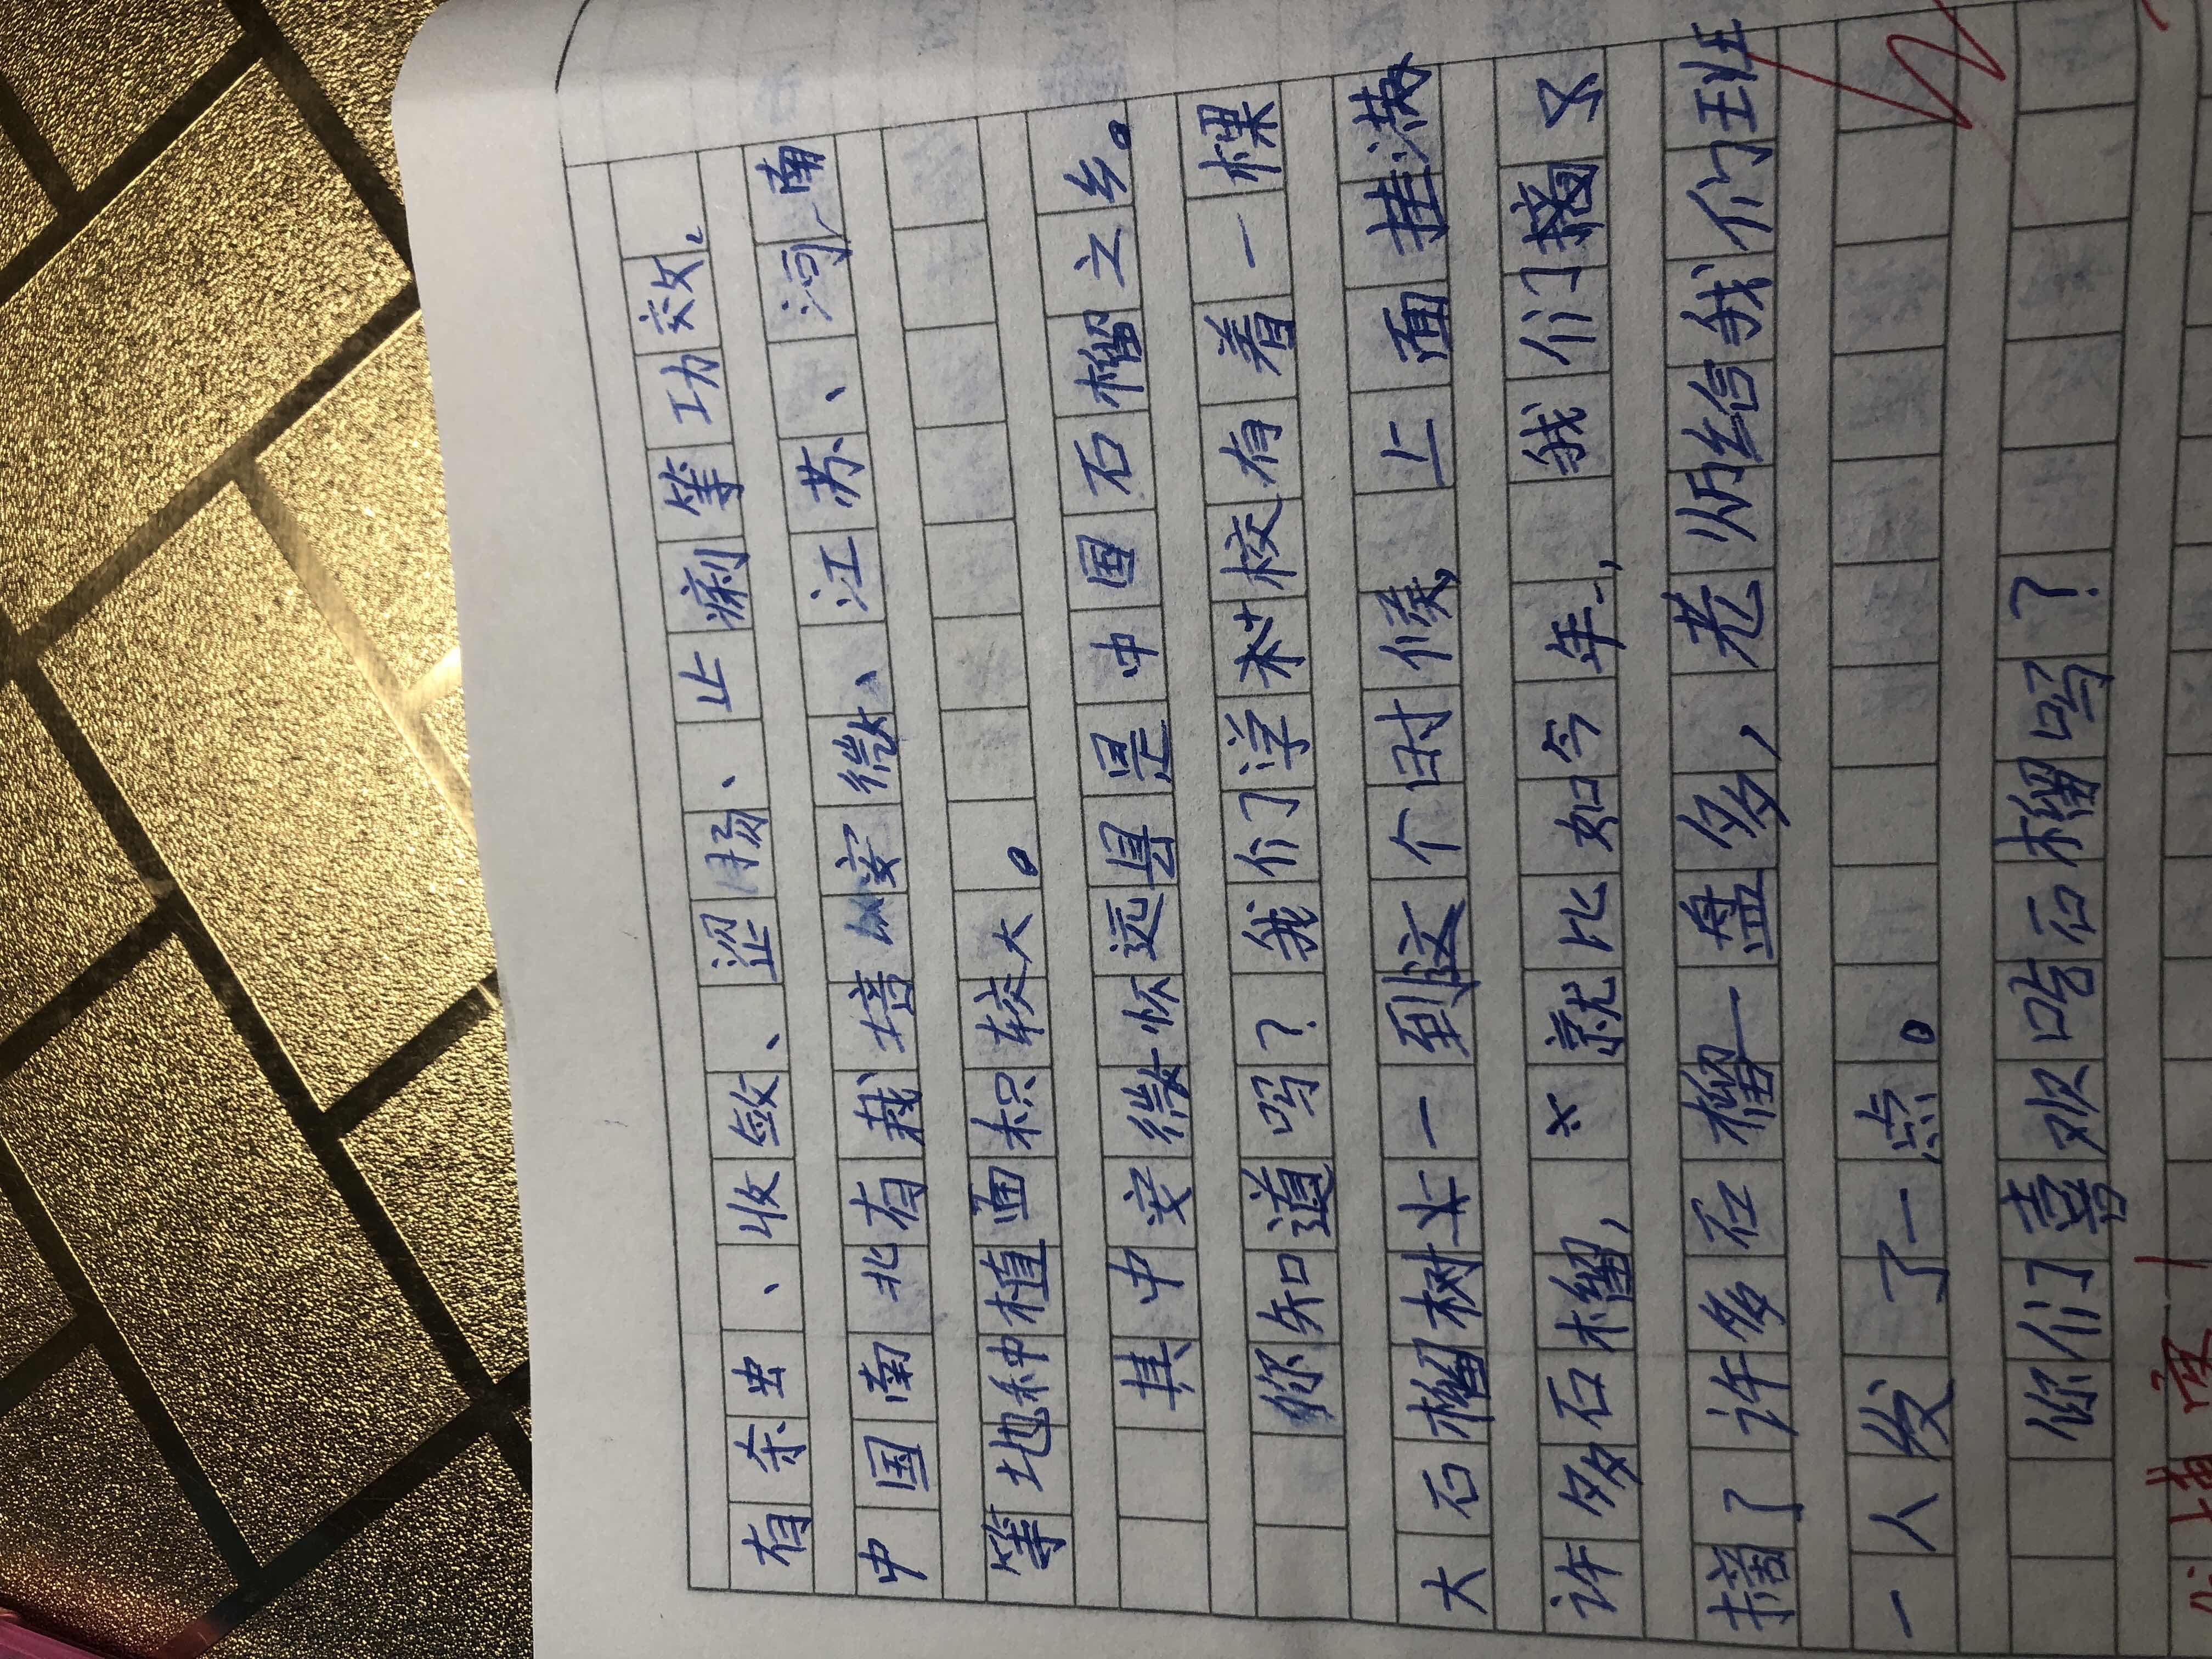 有杀虫、收敛、涩肠、止痢等功效。
中国南北有栽培 安徽、江苏、河南
等地种植面积较大。
其中安徽怀远县是中国石榴之乡。
你知道吗?我们学校有着一棵
大石榴树一到这个时候,上面挂满
许多石榴,就比如今年,我们摘又
摘了许多石榴一盘多,老师给我们班
一人发了一点。
你们喜欢吃石榴吗?